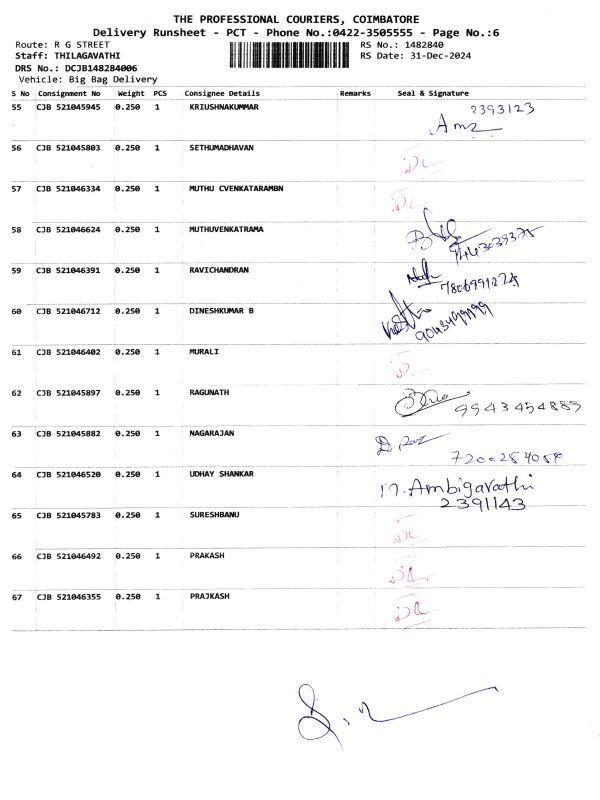 THE PROFESSIONAL COURIERS, COIMBATORE
Delivery Runsheet - PCT - Phone No.:0422-3505555 - Page No.:6
Route: R G STREET RS No.: 1482840
Staff: THILAGAVATHI RS Date: 31-Dec-2024
DRS No.: DCJB148284006
Vehicle: Big Bag Delivery
S No Consignment No Weight PCS Consignee Details Remarks Seal & Signature
55 CJB 521045945 0.250 1 KRIUSHNAKUMMAR 2393123
56 CJB 521045803 0.250 1 SETHUMADHAVAN
57 CJB 521046334 0.250 1 MUTHU CVENKATARAMBN
58 CJB 521046624 0.250 1 MUTHUVENKATRAMA
59 CJB 521046391 0.250 1 RAVICHANDRAN
60 CJB 521046712 0.250 1 DINESHKUMAR B
61 CJB 521046402 0.250 1 MURALI
62 CJB 521045897 0.250 1 RAGUNATH
63 CJB 521045882 0.250 1 NAGARAJAN
64 CJB 521046520 0.250 1 UDHAY SHANKAR Ambigavathi
2391143
65 CJB 521045783 0.250 1 SURESHBANU
66 CJB 521046492 0.250 1 PRAKASH
67 CJB 521046355 0.250 1 PRAJKASH